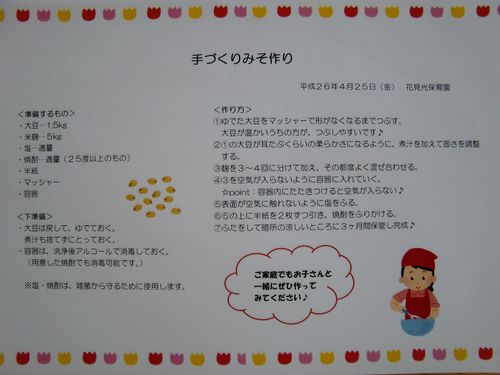 手づくりみそ作り
平成26年4月25日(金)　花見光保育園
<準備するもの>
・大豆…1.5kg
・米麹…5kg
・塩…適量
・焼酎…適量（25度以上のもの）
・半紙
・マッシャー
・容器
<下準備>
・大豆は戻して、ゆでておく。
煮汁も捨てずにとっておく。
・容器は、洗浄後アルコールで消毒しておく。
（用意した焼酎でも消毒可能です。）
※塩・焼酎は、雑菌から守るために使用します。
<作り方>
①ゆでた大豆をマッシャーで形がなくなるまでつぶす。
大豆が温かいうちの方が、つぶしやすいです♪
②①の大豆が耳たぶくらいの柔らかさになるように、煮汁を加えて固さを調整
する。
③麹を3～4回に分けて加え、その都度よく混ぜ合わせる。
④③を空気が入らないように容器に入れていく。
☆point：容器内にたたきつけると空気が入らない♪
⑤表面が空気に触れないように塩をふる。
⑥⑤の上に半紙を2枚ずつ引き、焼酎をふりかける。
⑦ふたをして暗所の涼しいところに3ヶ月間保管し完成♪
ご家庭でもお子さんと
一緒にぜひ作って
みてください♪